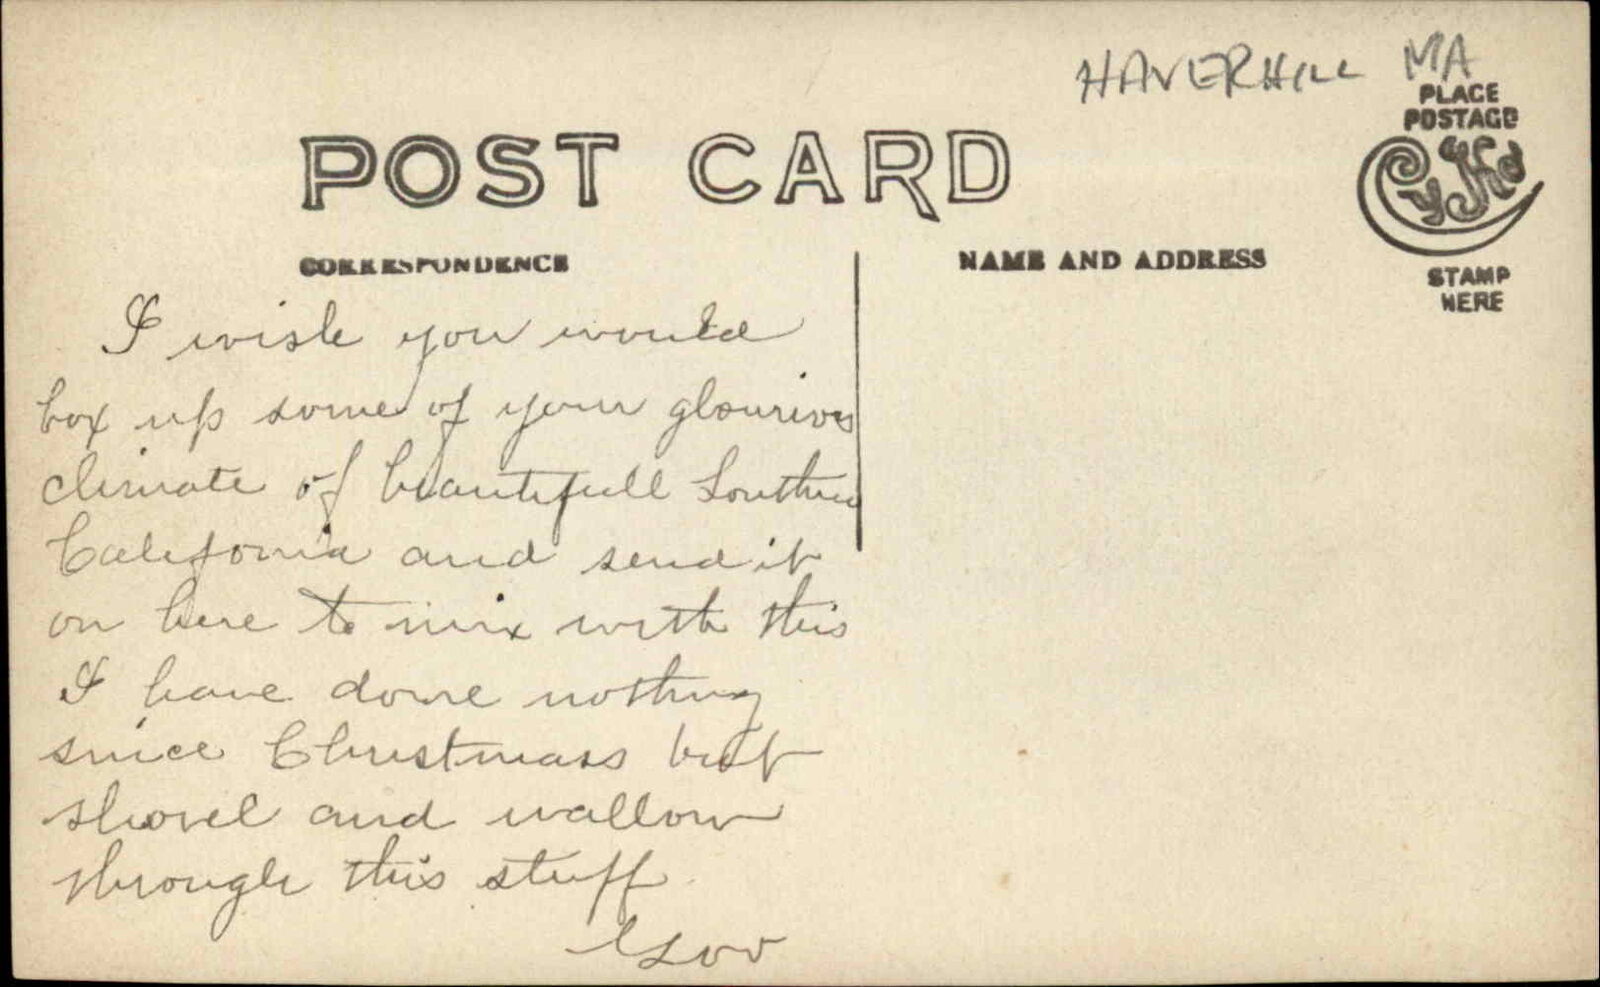 HAVERHILL MA
PLACE
POSTAGE
POST CARD
STAMP
HERE
CORRESPONDENCE
NAME AND ADDRESS
I wish you would
box up some of your glourious
climate of beautifull Southern
California and send it
on here to mix with this
I have done nothing
since Christmass but
shovel and wallow
through this stuff